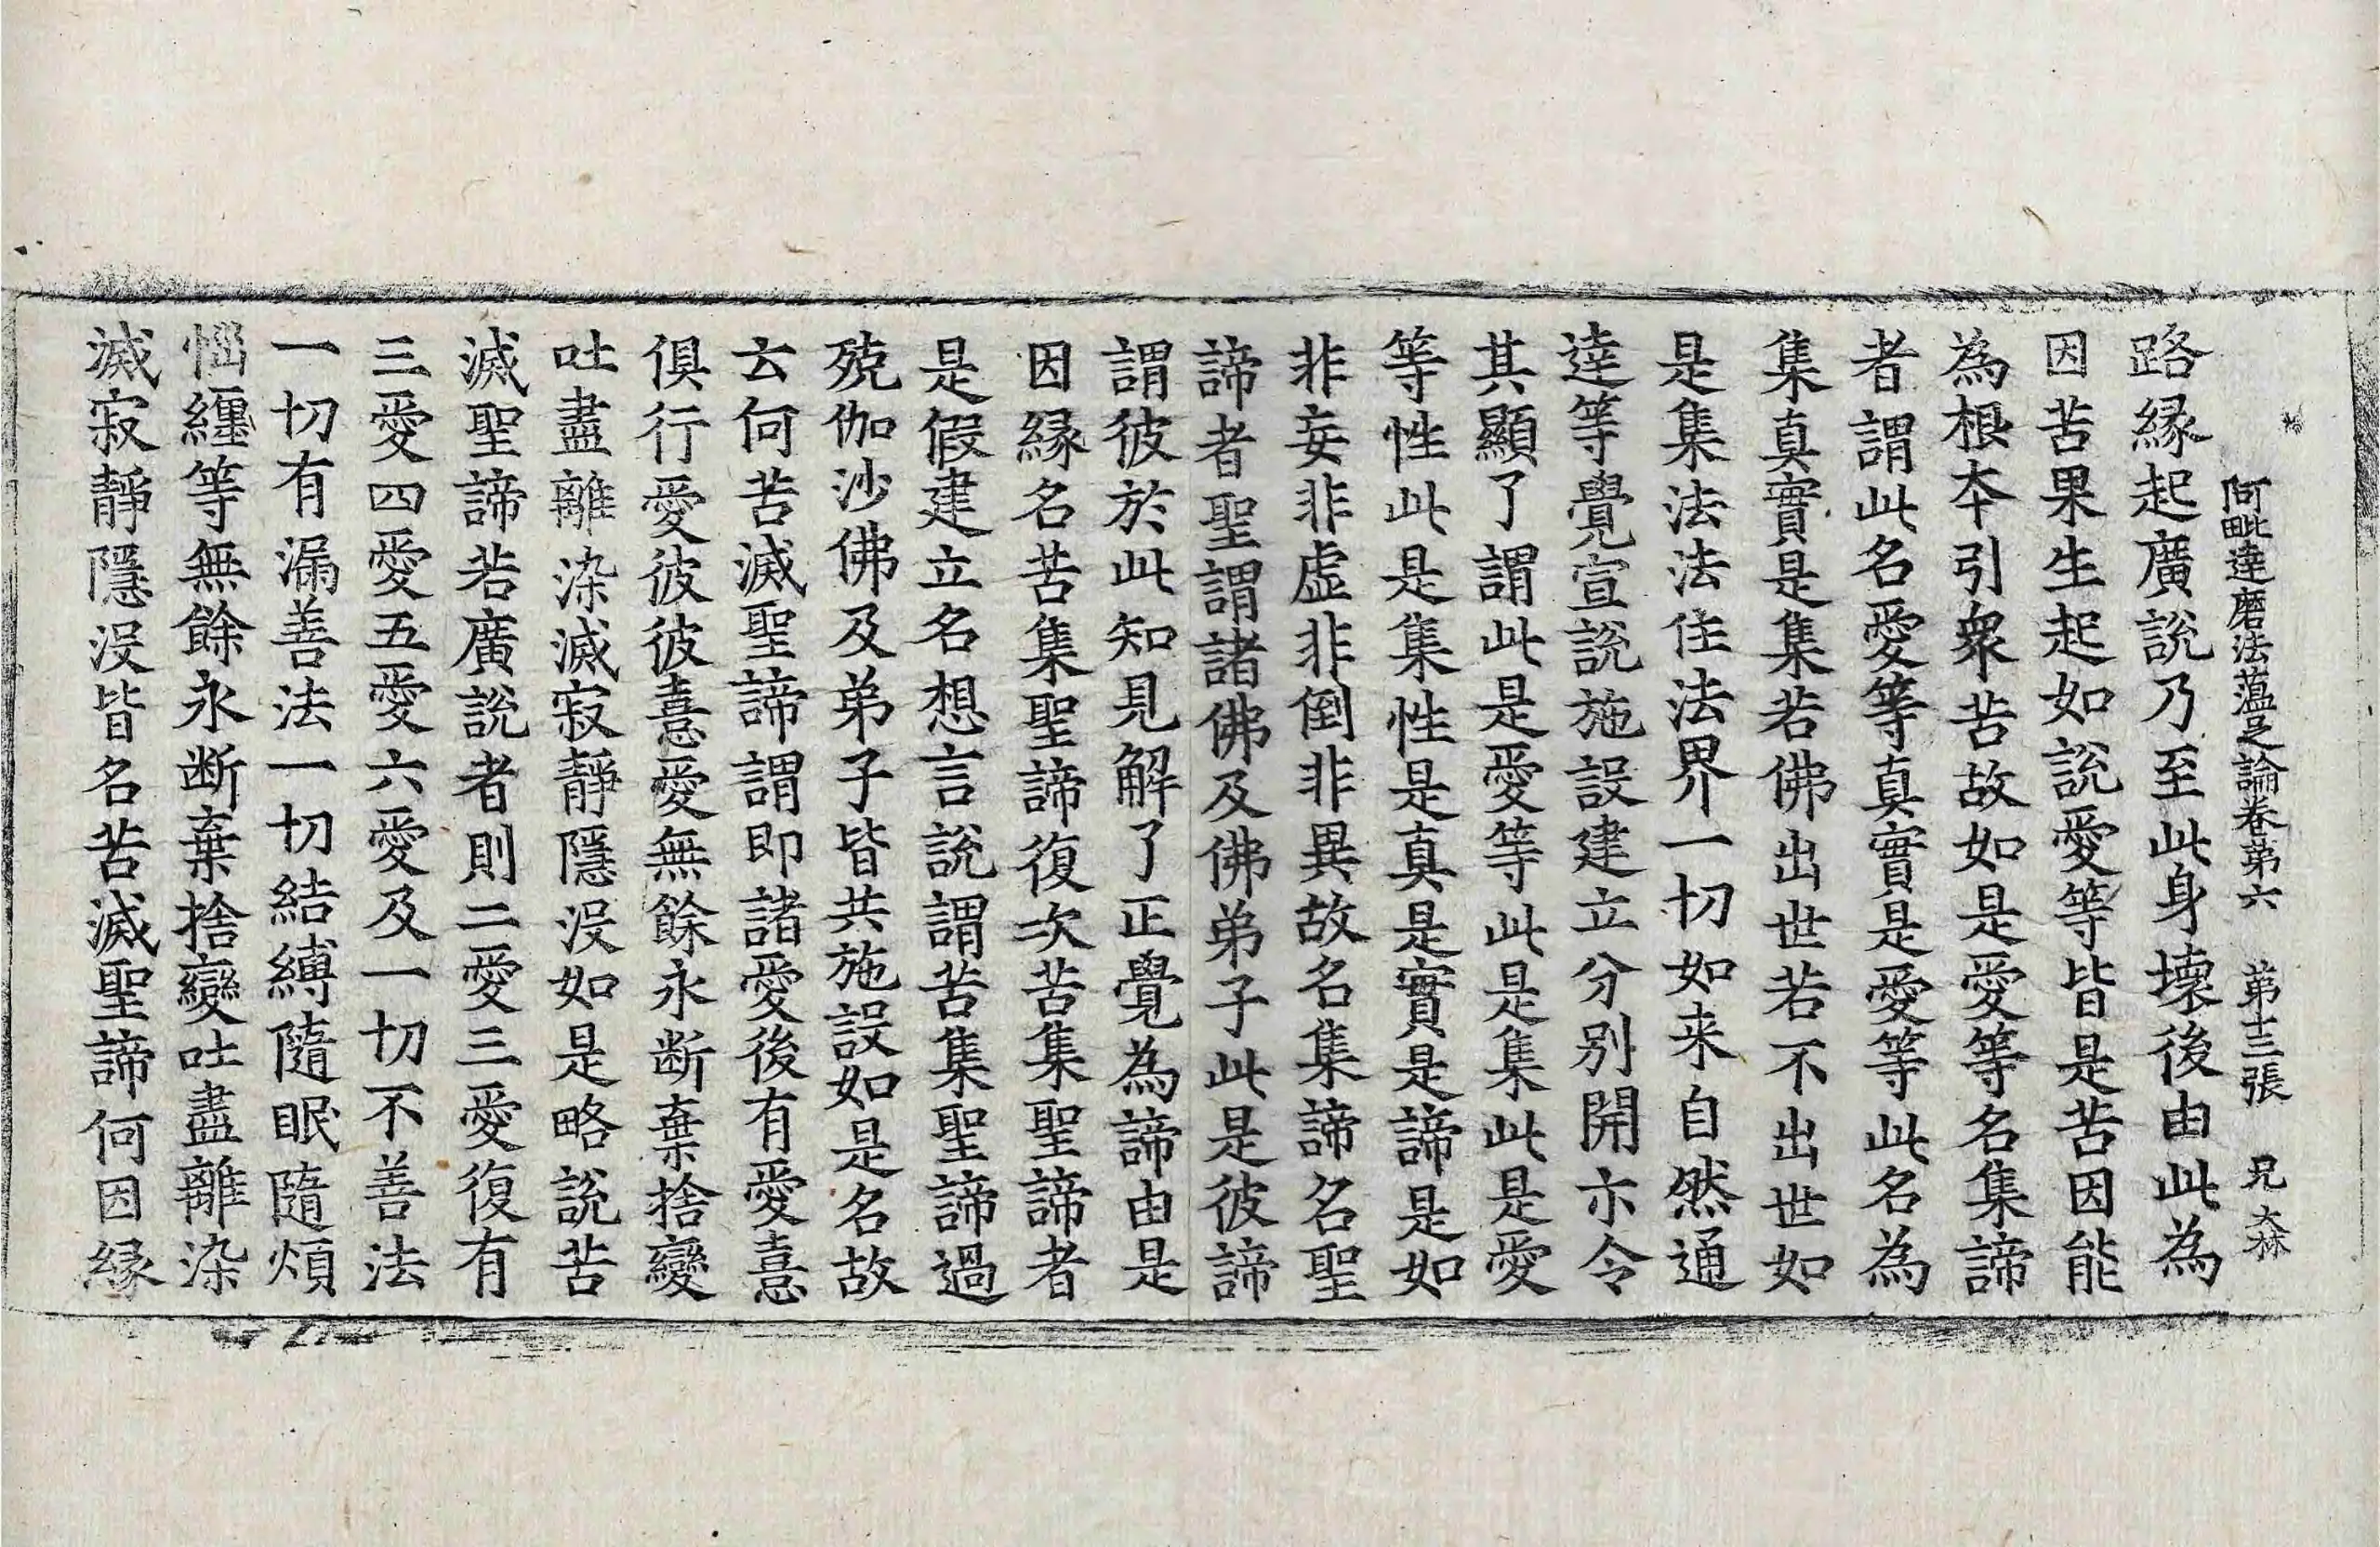 阿毗達磨法蘊足論卷第六　第十三張　兄　大林
路縁起廣說乃至此身壞後由此為
因苦果生起如說愛等皆是苦因能
為根本引衆苦故如是愛等名集諦
者謂此名愛等真實是愛等此名為
集真實是集若佛出世若不出世如
是集法法住法界一切如来自然通
達等覺宣說施設建立分别開示令
其顯了謂此是愛等此是集此是愛
等性此是集性是真是實是諦是如
非妄非虛非倒非異故名集諦名聖
諦者聖謂諸佛及佛弟子此是彼諦
謂彼於此知見解了正覺為諦由是
因縁名苦集聖諦復次苦集聖諦者
是假建立名想言說謂苦集聖諦過
殑伽沙佛及弟子皆共施設如是名故
云何苦滅聖諦謂即諸愛後有愛憙
俱行愛彼彼憙愛無餘永断棄捨變
吐盡離染滅寂靜隱没如是略說苦
滅聖諦若廣說者則二愛三愛復有
三愛四愛五愛六愛及一切不善法
一切有漏善法一切結縛隨眠隨煩
惱纏等無餘永断棄捨變吐盡離染
滅寂靜隱没皆名苦滅聖諦何因縁